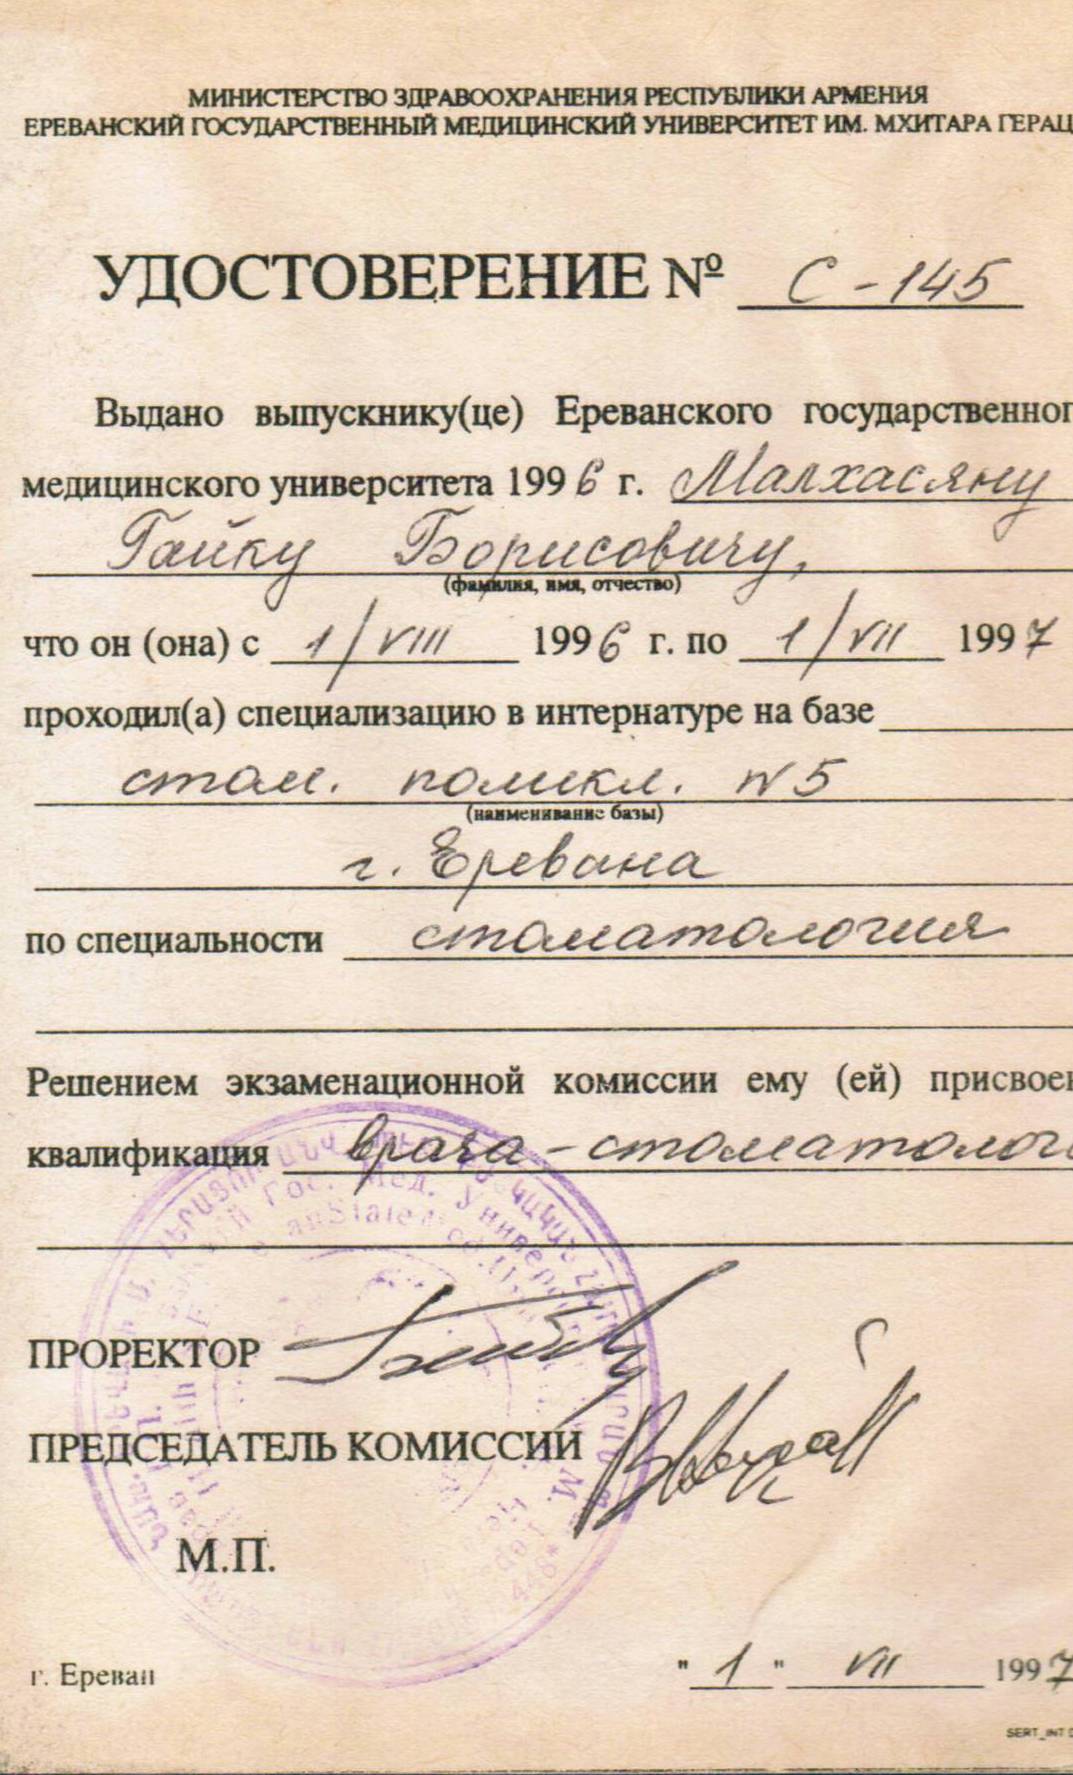 МИНИСТЕРСТВО ЗДРАВООХРАНЕНИЯ РЕСПУБЛИКИ АРМЕНИЯ
ЕРЕВАНСКИЙ ГОСУДАРСТВЕННЫЙ МЕДИЦИНСКИЙ УНИВЕРСИТЕТ ИМ. МХИТАРА ГЕРАЦ
УДОСТОВЕРЕНИЕ № С-145
Выдано выпускнику(це) Ереванского государственног
медицинского университета 1996 г. Малхасяну
Гайку Борисовичу,
(фамилия, имя, отчество)
что он (она) с 1/VIII 1996 г. по 1/VII 1997
проходил(а) специализацию в интернатуре на базе
стом. поликл. N5
(наименивание базы)
г. Еревана
по специальности стоматология
Решением экзаменационной комиссии ему (ей) присвоен
квалификация врача-стоматолога
Гос. Мед. Универс
ПРОРЕКТОР
ПРЕДСЕДАТЕЛЬ КОМИССИИ
М.П.
г. Ереван "1" VII 1997
SERT_INT